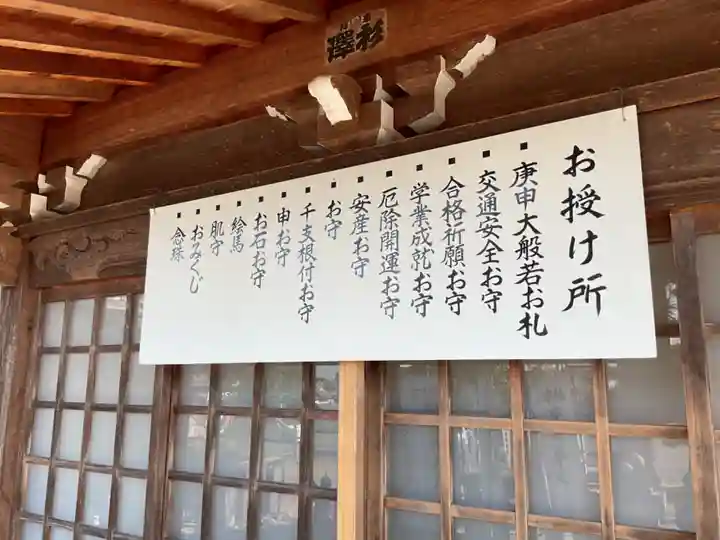 お授け所
■庚申大般若お札
■交通安全お守
■合格祈願お守
■学業成就お守
■厄除開運お守
■安産お守
■お守
■干支根付お守
■申お守
■お石お守
■絵馬
■肌守
■おみくじ
■念珠